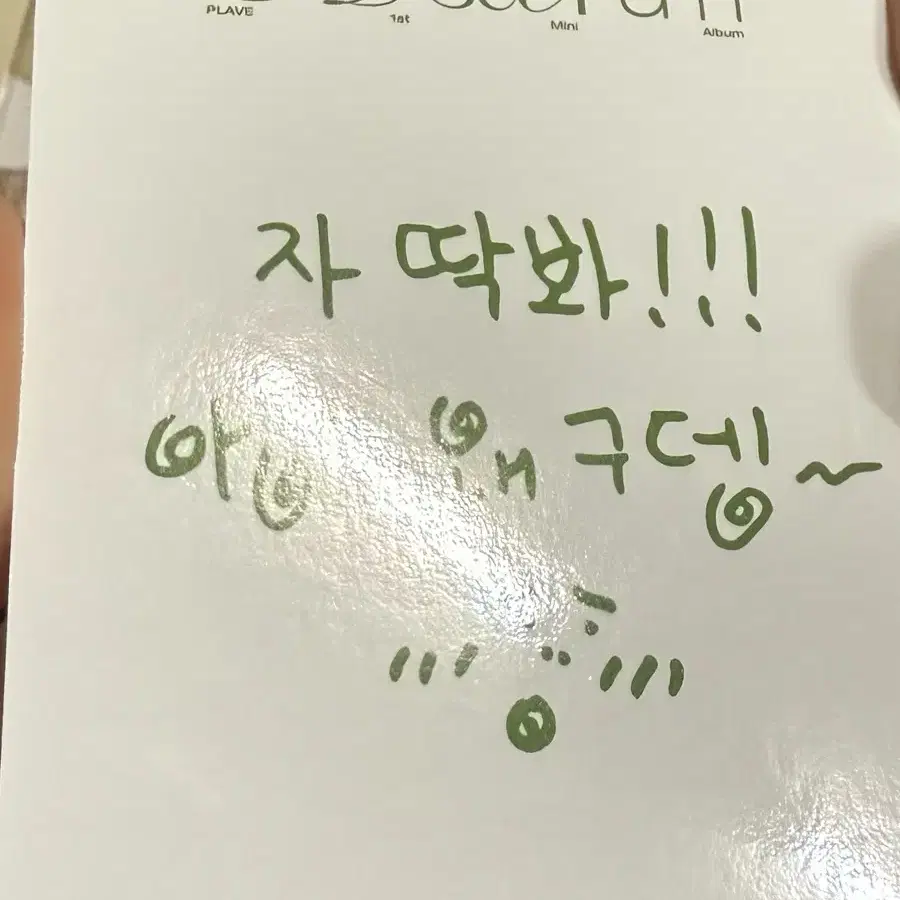 PLAVE 1st Mini Album
자 딱봐!!!
앙 왜구뎅~